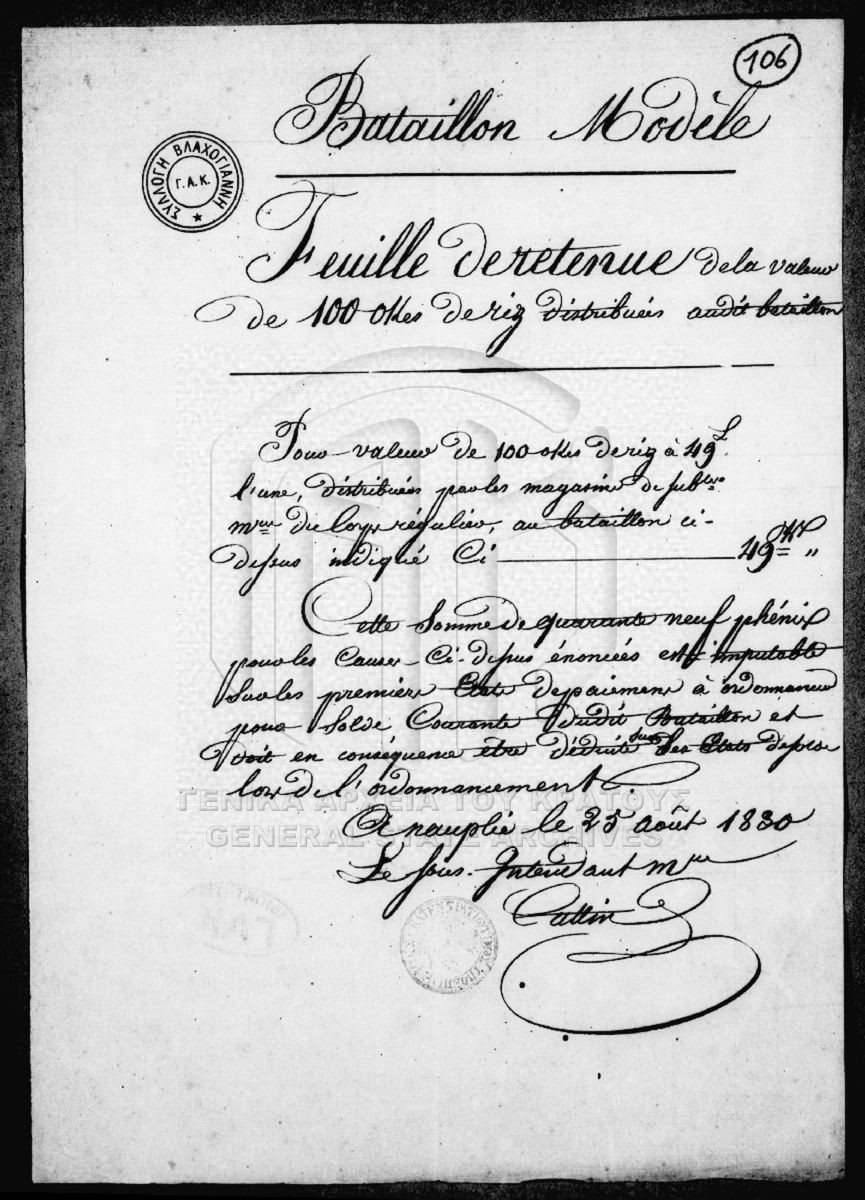 106
Bataillon Modèle
ΣΥΛΛΟΓΗ ΒΛΑΧΟΓΙΑΝΝΗ
Γ.Α.Κ.
Feuille de retenue de la valeur
de 100 okes de riz distribuées audit bataillon
Pour valeur de 100 okes de riz à 49
l'une, distribuées par les magasins de subces
mres du Corps régulier, au bataillon ci-
dessus indiqué Ci 49 "
Cette somme de quarante neuf phénix
pour les causes ci-dessus énoncées est imputable
sur les premiers états de paiement à ordonnancer
pour solde courante dudit Bataillon et
doit en conséquence etre déduite sur les Etats de
lors de l'ordonnancement.
ΓΕΝΙΚΑ ΑΡΧΕΙΑ ΤΟΥ ΚΡΑΤΟΥΣ
GENERAL STATE ARCHIVES
A nauplie le 25 août 1830
Le sous-Intendant mre